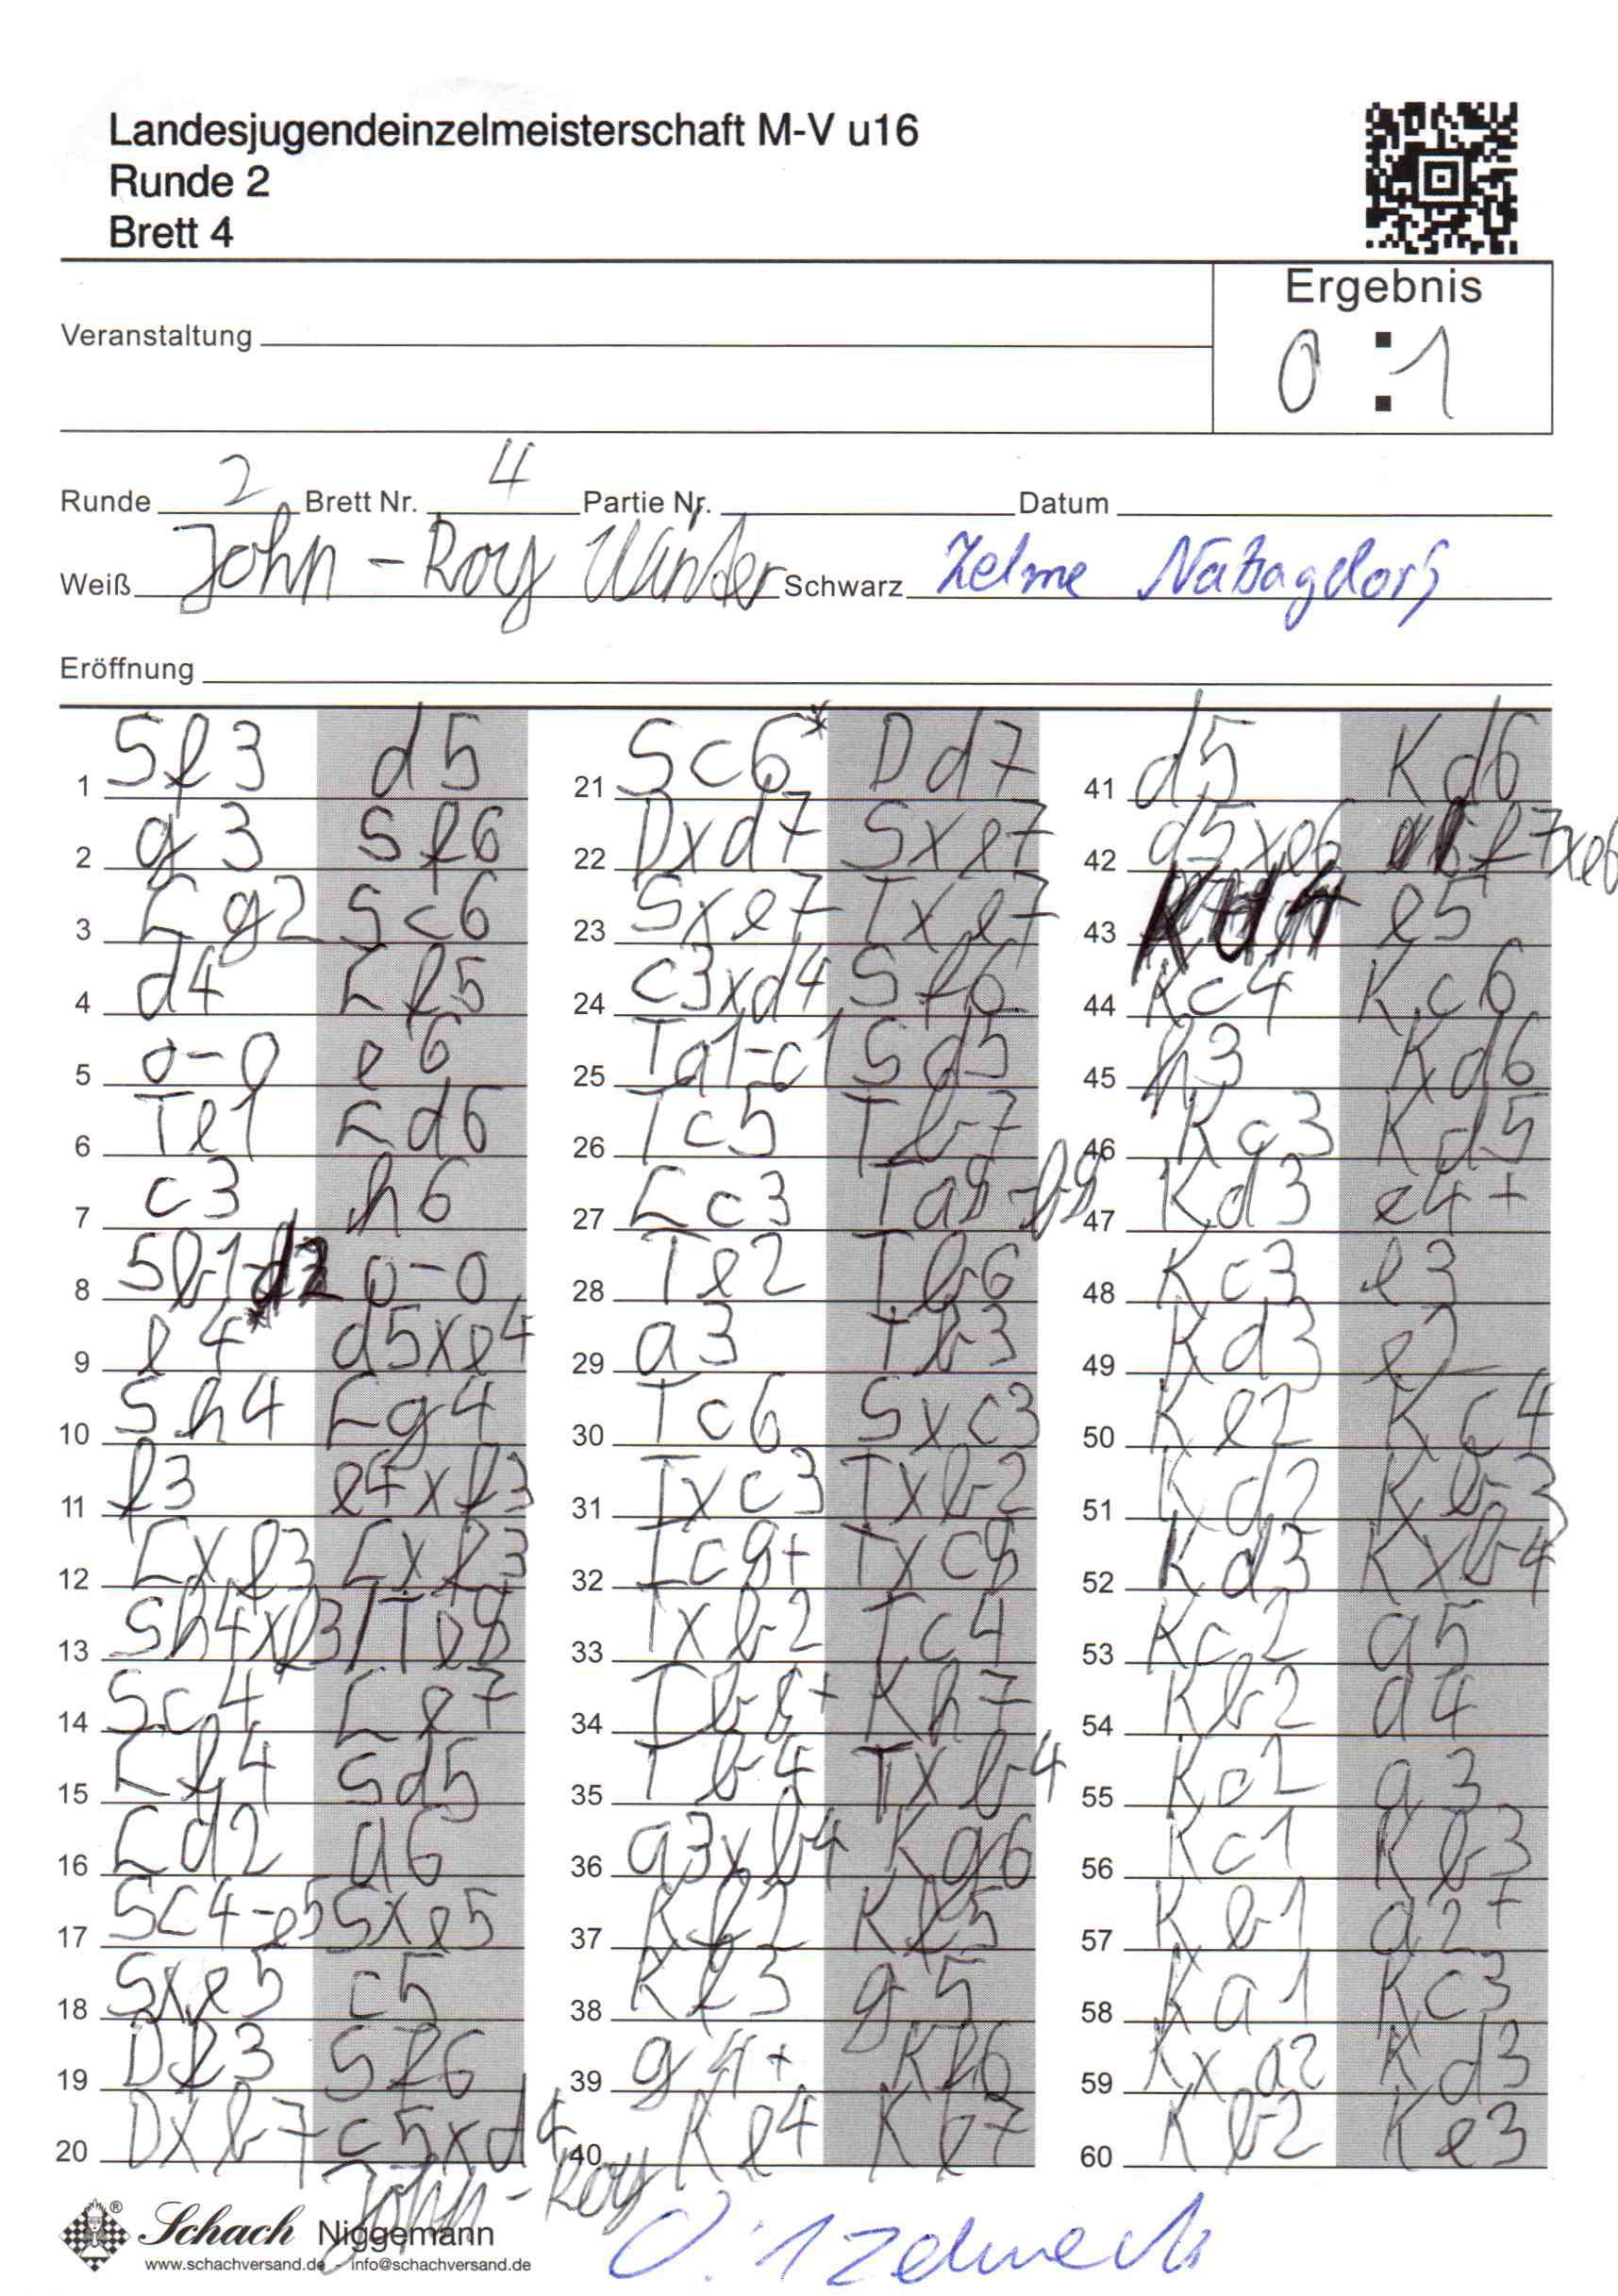 Landesjugendeinzelmeisterschaft M-V u16
Runde 2
Brett 4
Ergebnis
0 : 1
Veranstaltung
Runde 2 Brett Nr. 4 Partie Nr. Datum
Weiß John-Roy Winter Schwarz
Eröffnung
1 Sf3 d5
2 g3 Sf6
3 Lg2 Sc6
4 d4 Lf5
5 0-0 e6
6 Te1 Ld6
7 c3 h6
8 Sb1-d2 0-0
9 e4 d5xe4
10 Sh4 Lg4
11 f3 e4xf3
12 Lxf3 Lxf3
13 Sh4xf3 Te8
14 Sc4 Le7
15 Lf4 Sd5
16 Ld2 a6
17 Sc4-e5 Sxe5
18 Sxe5 c5
19 Df3 Sf6
20 Dxb7 c5xd4
21 Sc6* Dd7
22 Dxd7 Sxe7
23 Sxe7 Txe7
24 c3xd4 Sf6
25 Ta1-c1 Sd5
26 Tc5 Tb7
27 Lc3 Ta8-b8
28 Te2 Tb6
29 a3 Tb3
30 Tc6 Sxc3
31 Txc3 Txb2
32 Tc8+ Txc8
33 Txb2 Tc4
34 Tb8+ Kh7
35 Tb4 Txb4
36 a3xb4 Kg6
37 Kf2 Kf5
38 Kf3 g5
39 g4+ Kf6
40 Ke4 Ke7
41 d5 Kd6
42 d5xe6 f7xe6
43 Kd4 e5
44 Kc4 Kc6
45 h3 Kd6
46 Kc3 Kd5
47 Kd3 e4+
48 Kc3 e3
49 Kd3 e2
50 Ke2 Kc4
51 Kd2 Kb3
52 Kd3 Kxb4
53 Kc2 a5
54 Kb2 a4
55 Kc2 a3
56 Kc1 Kb3
57 Kb1 a2+
58 Ka1 Kc3
59 Kxa2 Kd3
60 Kb2 Ke3
John-Roy
0:1
Schach Niggemann
www.schachversand.de - info@schachversand.de